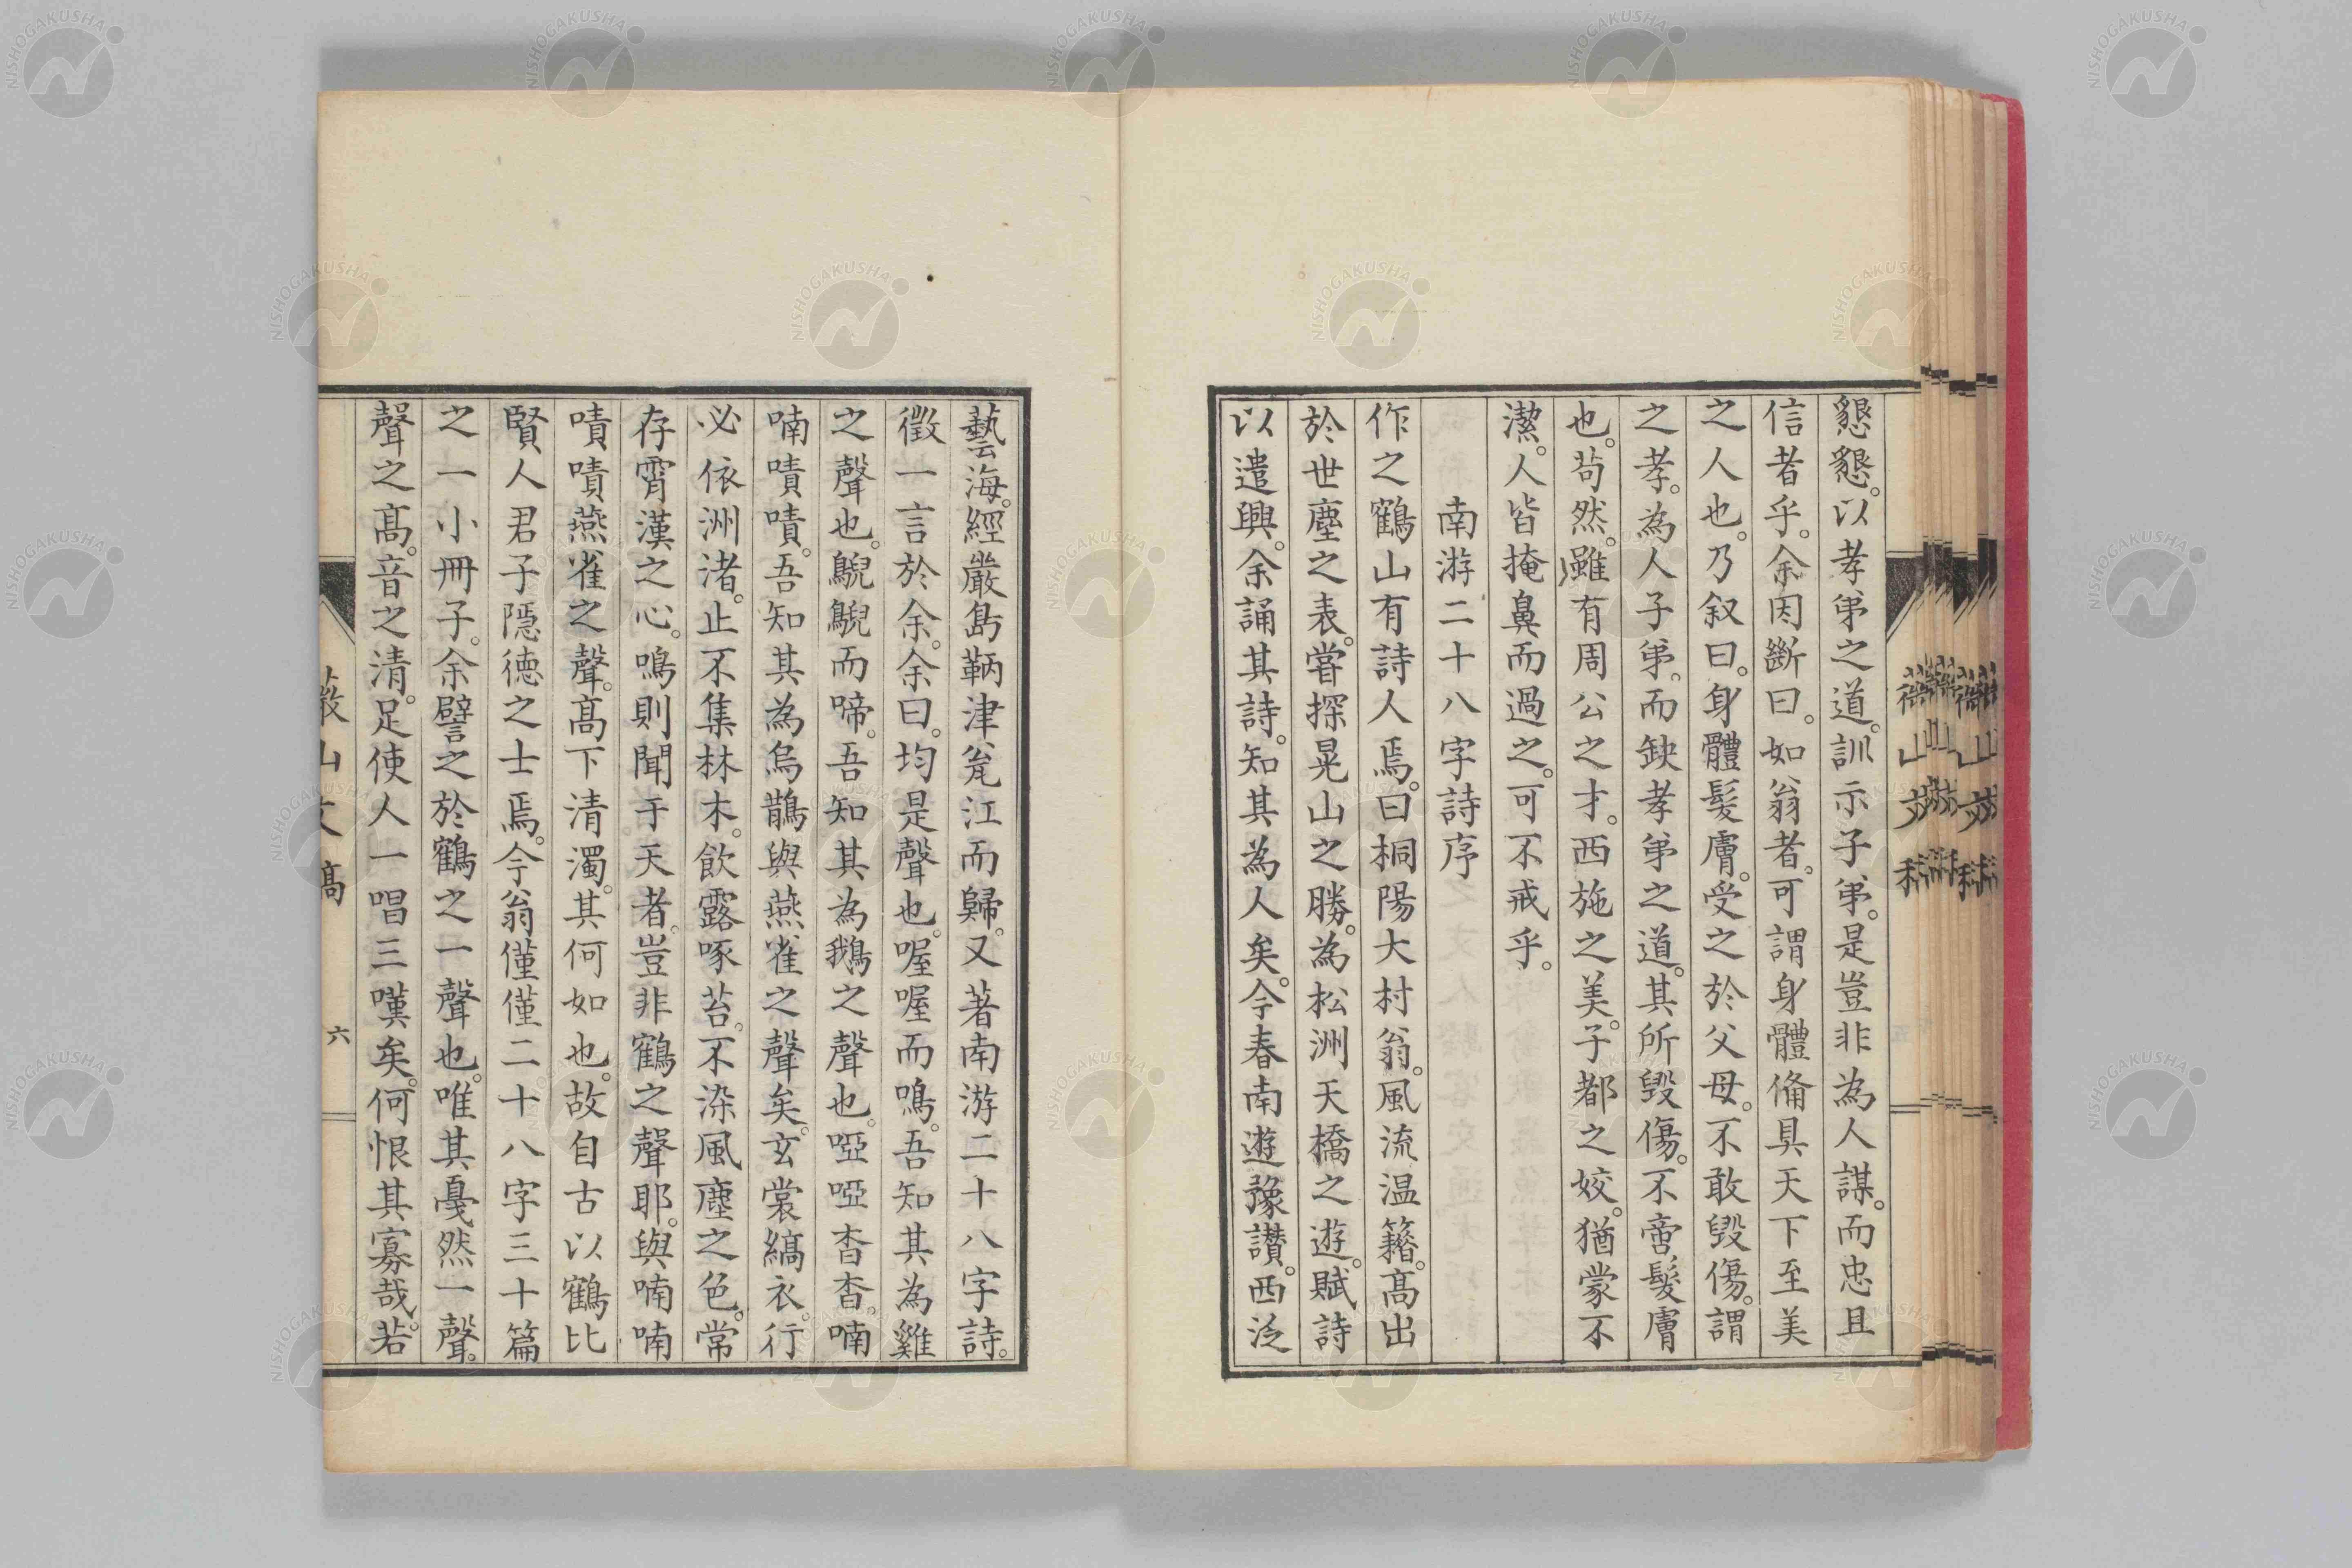 懇懇。以孝弟之道。訓示子弟。是豈非為人謀。而忠且
信者乎。余因斷曰。如翁者。可謂身體俻具天下至美
之人也。乃叙曰。身體髮膚。受之於父母。不敢毀傷。謂
之孝。為人子弟。而缺孝弟之道。其所毀傷。不啻髮膚
也。苟然。雖有周公之才。西施之美。子都之姣。猶蒙不
潔。人皆掩鼻而過之。可不戒乎。
南游二十八字詩序
作之鶴山有詩人焉。曰桐陽大村翁。風流温籍。高出
於世塵之表。嘗探晃山之勝。為松洲天橋之遊。賦詩
以遣興。余誦其詩。知其為人矣。今春南遊豫讃。西泛
藝海。經嚴島鞆津瓮江而歸。又著南游二十八字詩。
徵一言於余。余曰。均是聲也。喔喔而鳴。吾知其為雞
之聲也。鶃鶃而啼。吾知其為鵝之聲也。啞啞杳杳。喃
喃嘖嘖。吾知其為烏鵲與燕雀之聲矣。玄裳縞衣。行
必依洲渚。止不集林木。飲露啄苔。不染風塵之色。常
存霄漢之心。鳴則聞于天者。豈非鶴之聲耶。與喃喃
嘖嘖燕雀之聲。高下清濁。其何如也。故自古以鶴比
賢人君子隱德之士焉。今翁僅僅二十八字三十篇
之一小冊子。余譬之於鶴之一聲也。唯其戞然一聲。
聲之高。音之清。足使人一唱三嘆矣。何恨其寡哉。若
山文稿
六
NISHOGAKUSHA